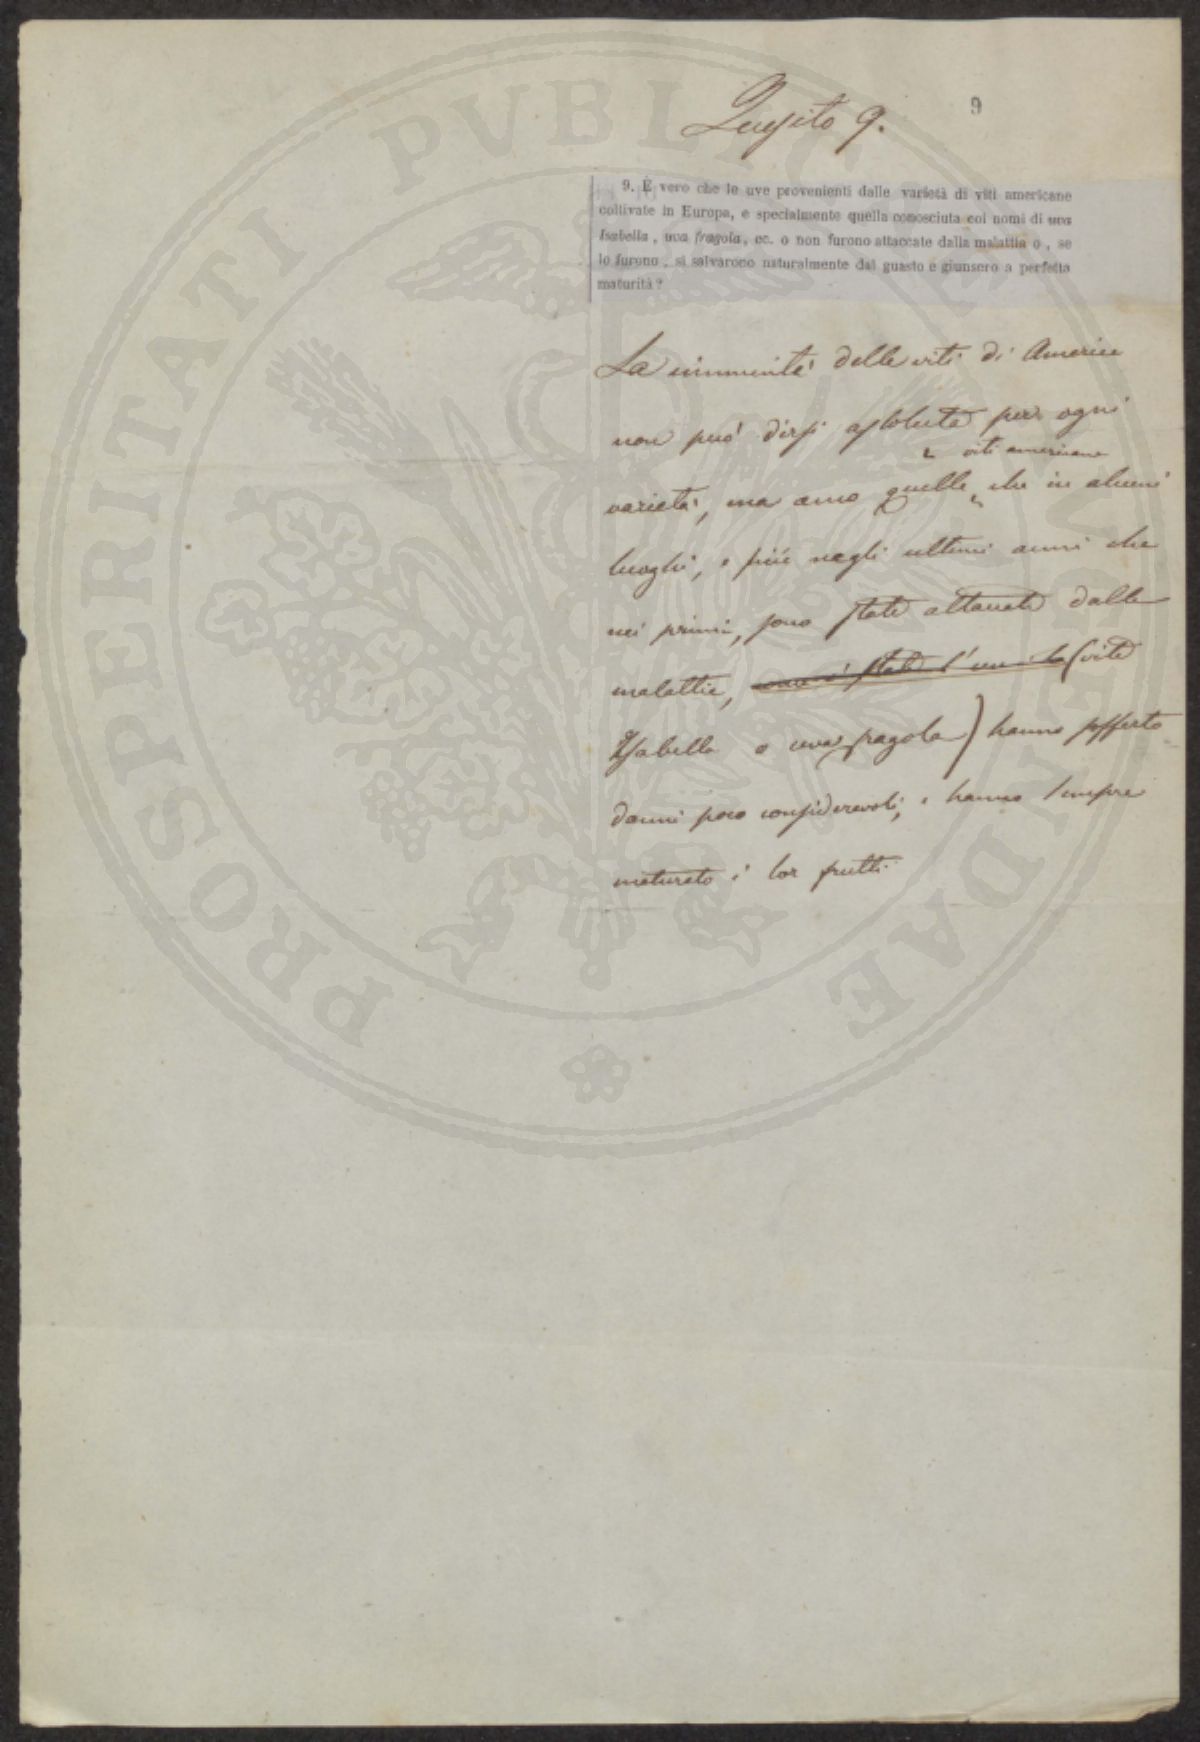 Quesito 9.
9
9. È vero che le uve provenienti dalle varietà di viti americane
coltivate in Europa, e specialmente quella conosciuta coi nomi di uva
Isabella, uva fragola, ec. o non furono attaccate dalla malattia o, se
lo furono, si salvarono naturalmente dal guasto e giunsero a perfetta
maturità?
La immunità delle viti di America
non può dirsi assoluta per ogni
viti americane
varietà, ma anco quelle che in alcuni
luoghi, e più negli ultimi anni che
nei primi, sono state attaccate dalla
malattia, (vite
Isabella o uva fragola) hanno sofferto
danni poco considerevoli, e hanno sempre
maturato i lor frutti
PROSPERITATI PVBLICAE AVGENDAE